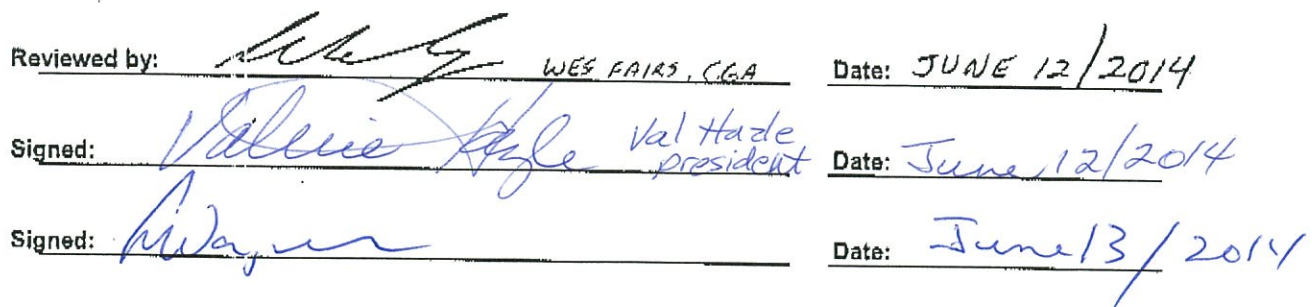 Reviewed by: WES FAIRS, CGA Date: JUNE 12/2014
Signed: Valerie Hazle Val Hazle president Date: June 12/2014
Signed: Date: June 13/2014